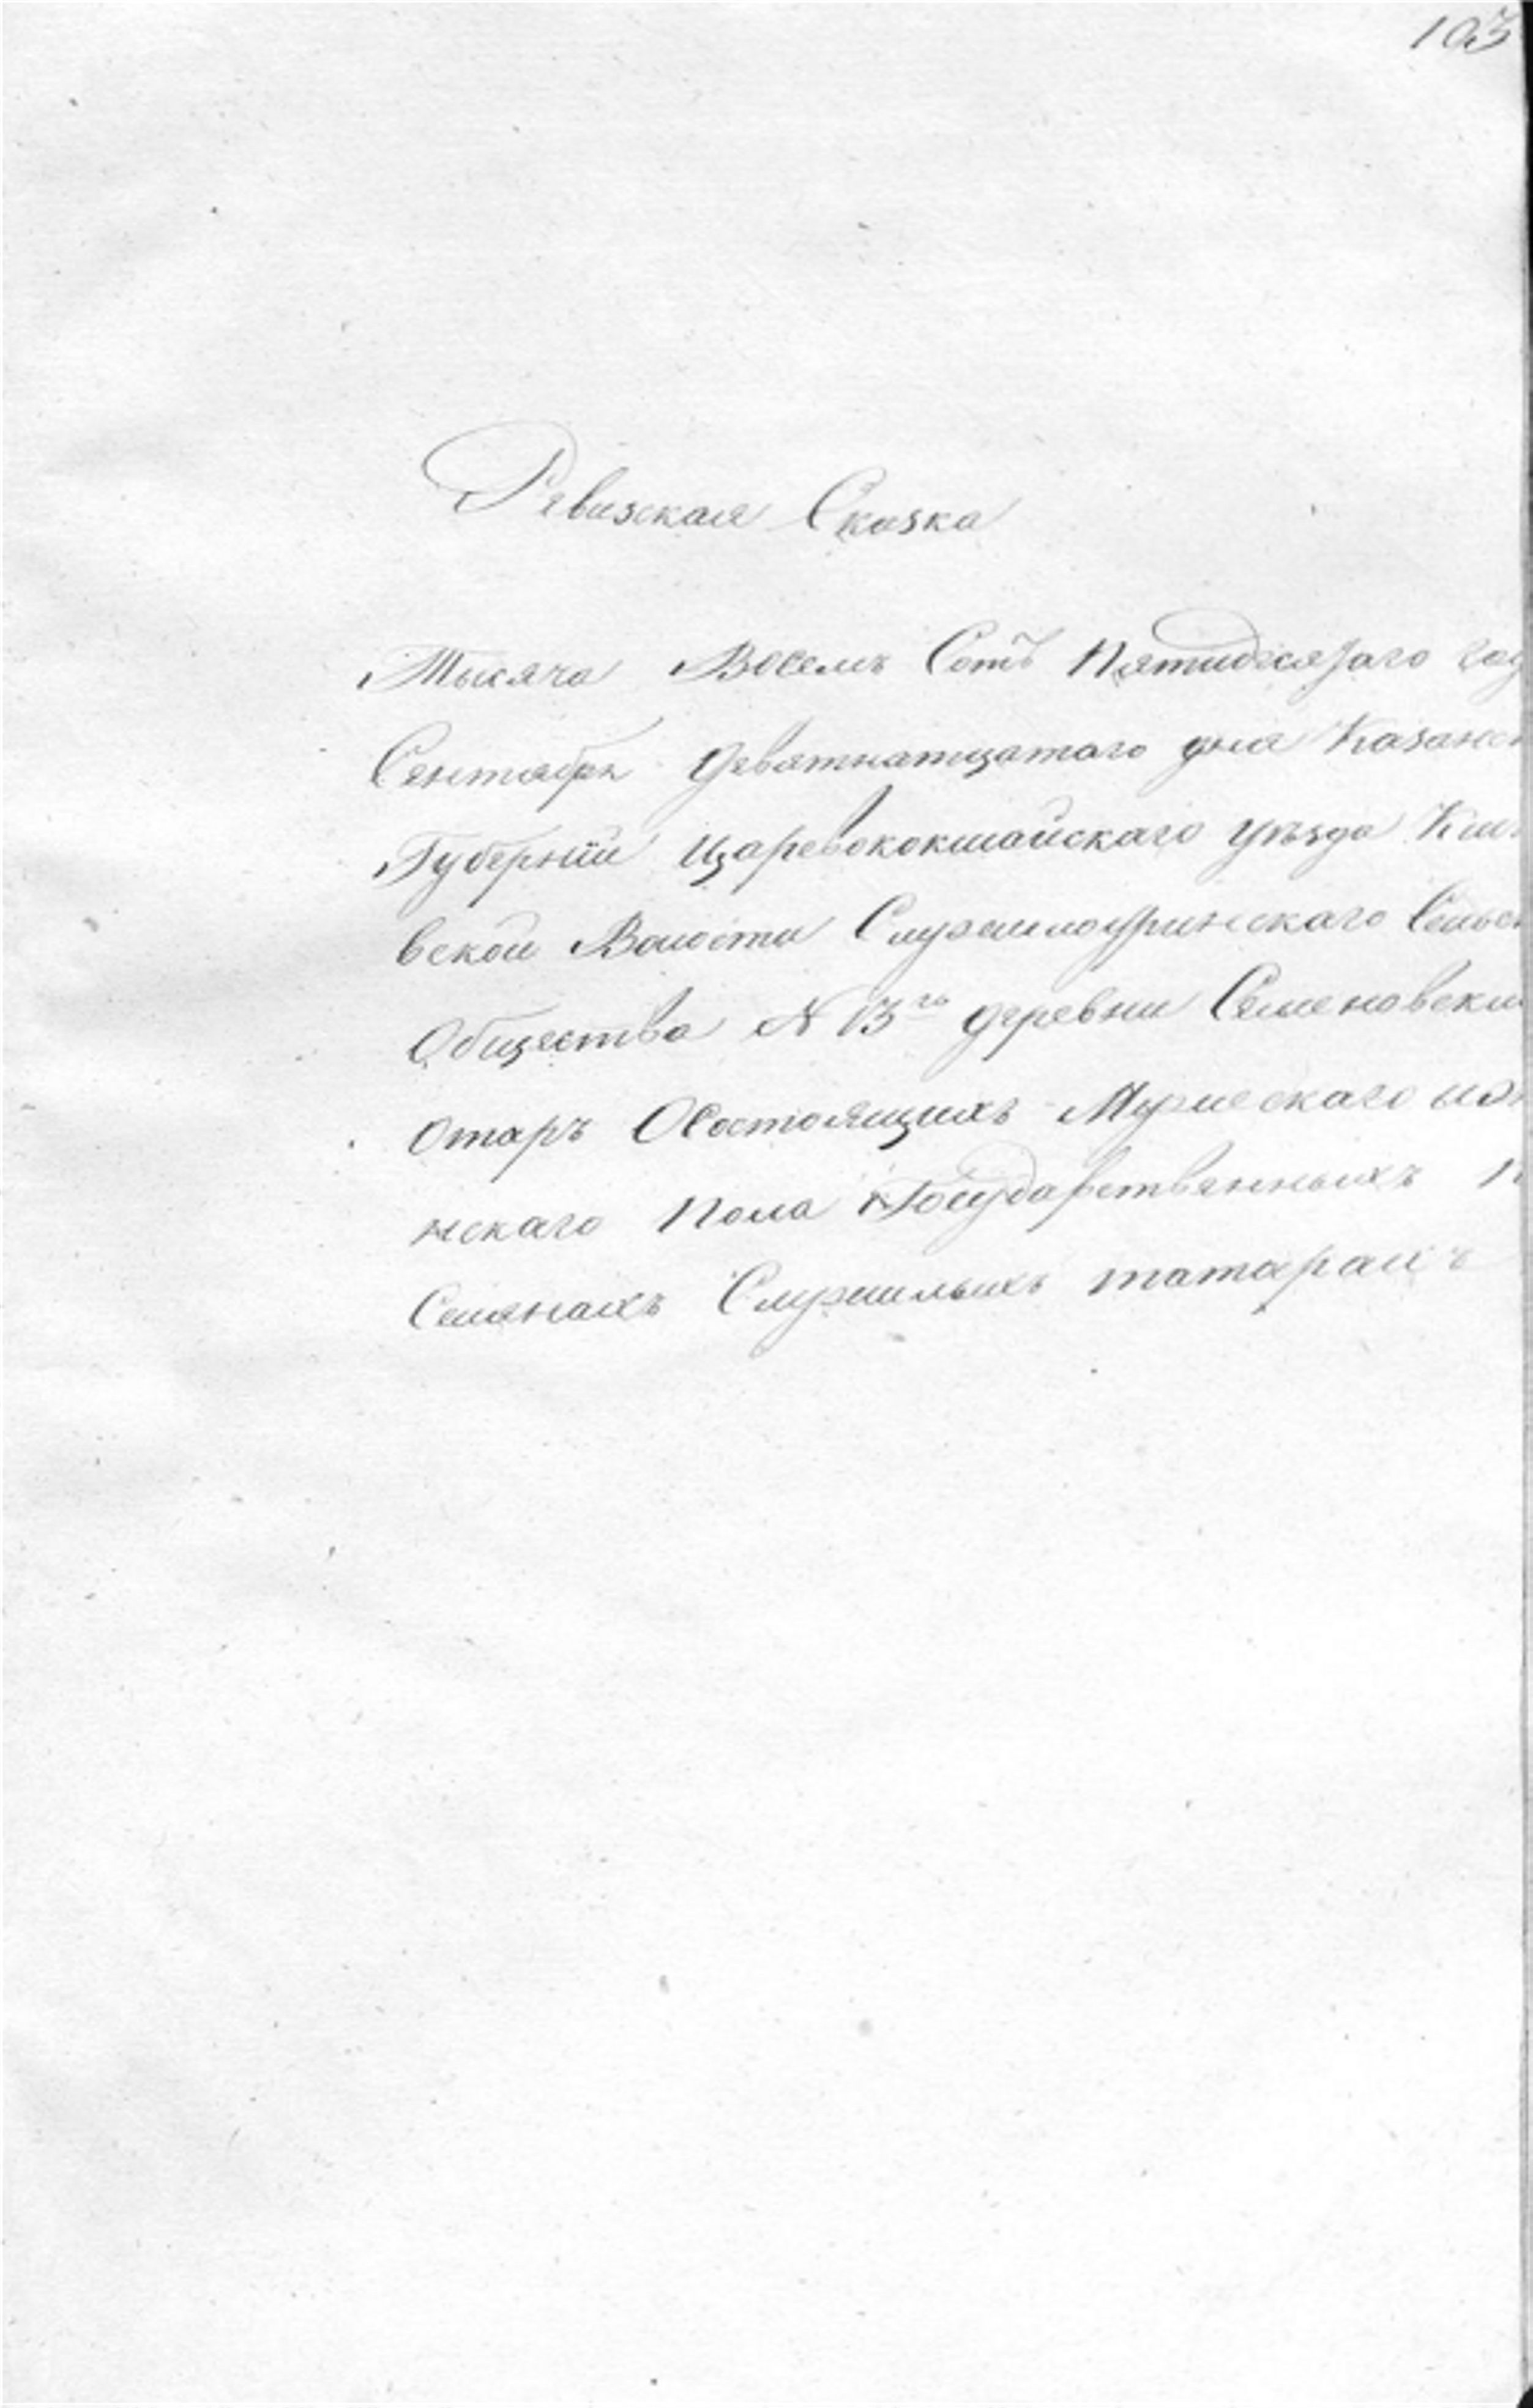 103
Ревизская Сказка
Тысяча Восемь Сотъ Пятидесятаго год
Сентября девятнатцатого дня Казанск
Губернiи Царевококшайскаго уѣзда Кши
вской Волости Служилоуринскаго Сельск
Общества N 13го деревни Семеновски
Отаръ Осостоящихъ Мужескаго иж
нскаго Пола Государственныхъ
Селянахъ Служилыхъ татарахъ